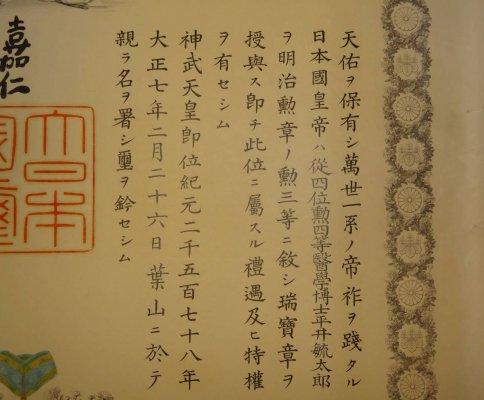 天佑ヲ保有シ萬世一系ノ帝祚ヲ踐タル
日本國皇帝ハ從四位勲四等醫學博士平井毓太郎
ヲ明治勲章ノ勲三等ニ敘シ瑞寶章ヲ
授與ス卽チ此位ニ屬スル禮遇及ヒ特權
ヲ有セシム
神武天皇卽位紀元二千五百七十八年
大正七年二月二十六日葉山ニ於テ
親ラ名ヲ署シ璽ヲ鈐セシム
嘉仁
大日本
國璽